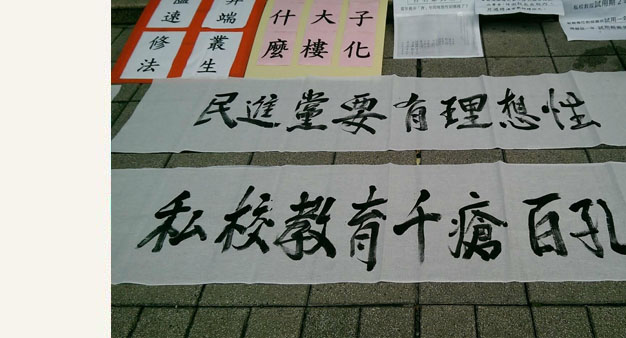 子化
大樓
什麼
端叢生
速修法
民進黨要有理想性
私校教育千瘡百孔